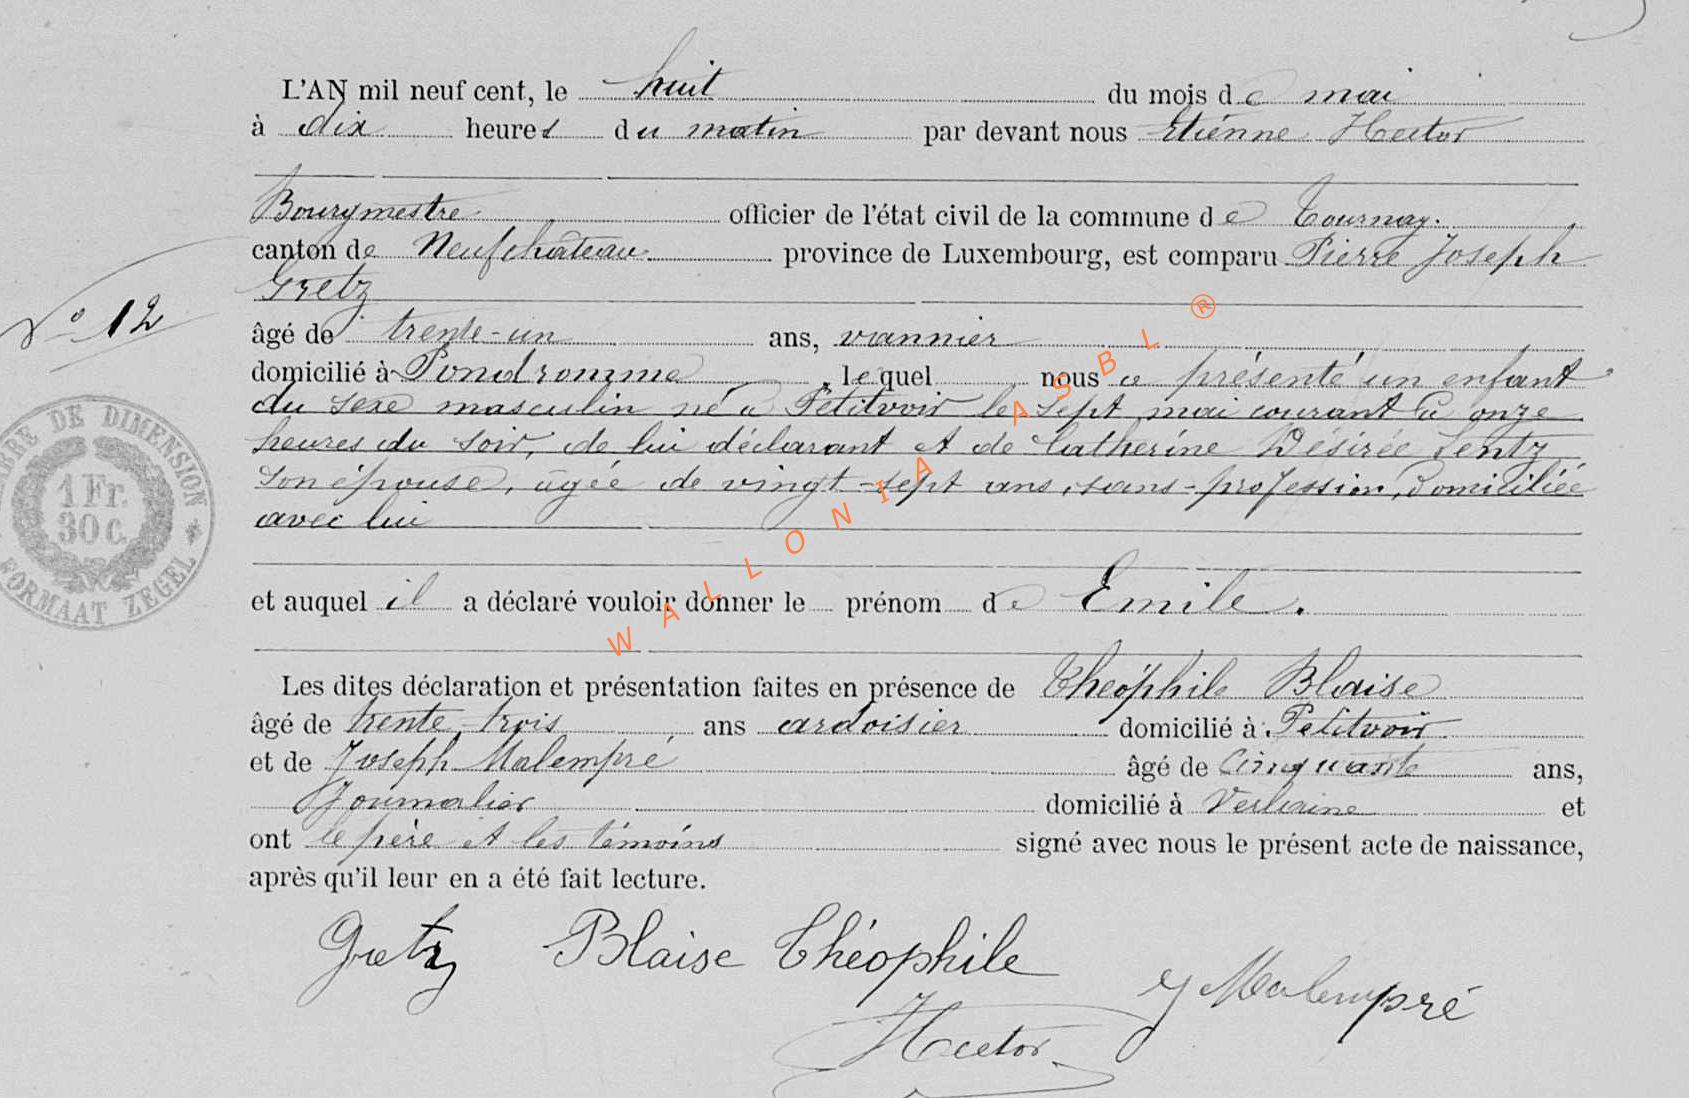 L'AN mil neuf cent, le huit du mois de mai
à dix heures du matin par devant nous Etiénne Hector
Bourgmestre officier de l'état civil de la commune de Tournay.
canton de Neufchâteau province de Luxembourg, est comparu Pierre Joseph
Gretz
N° 12
âgé de trente-un ans, vannier
domicilié à Pondromme, lequel nous a présenté un enfant
du sexe masculin né à Petitvoir le sept mai courant à onze
heures du soir, de lui déclarant et de Catherine Désirée Lentz
son épouse, âgée de vingt-sept ans, sans-profession, domiciliée
avec lui
et auquel il a déclaré vouloir donner le prénom de Emile.
Les dites déclaration et présentation faites en présence de Théophile Blaise
âgé de trente-trois ans ardoisier domicilié à Petitvoir
et de Joseph Malempré âgé de Cinquante ans,
Journalier domicilié à Verlaine et
ont le père et les témoins signé avec nous le présent acte de naissance,
après qu'il leur en a été fait lecture.
Gretz Blaise Théophile
J Malempré
Hector
DE DIMENSION
1 Fr.
30 C.
FORMAAT ZEGEL
WALLONIA ASBL ®